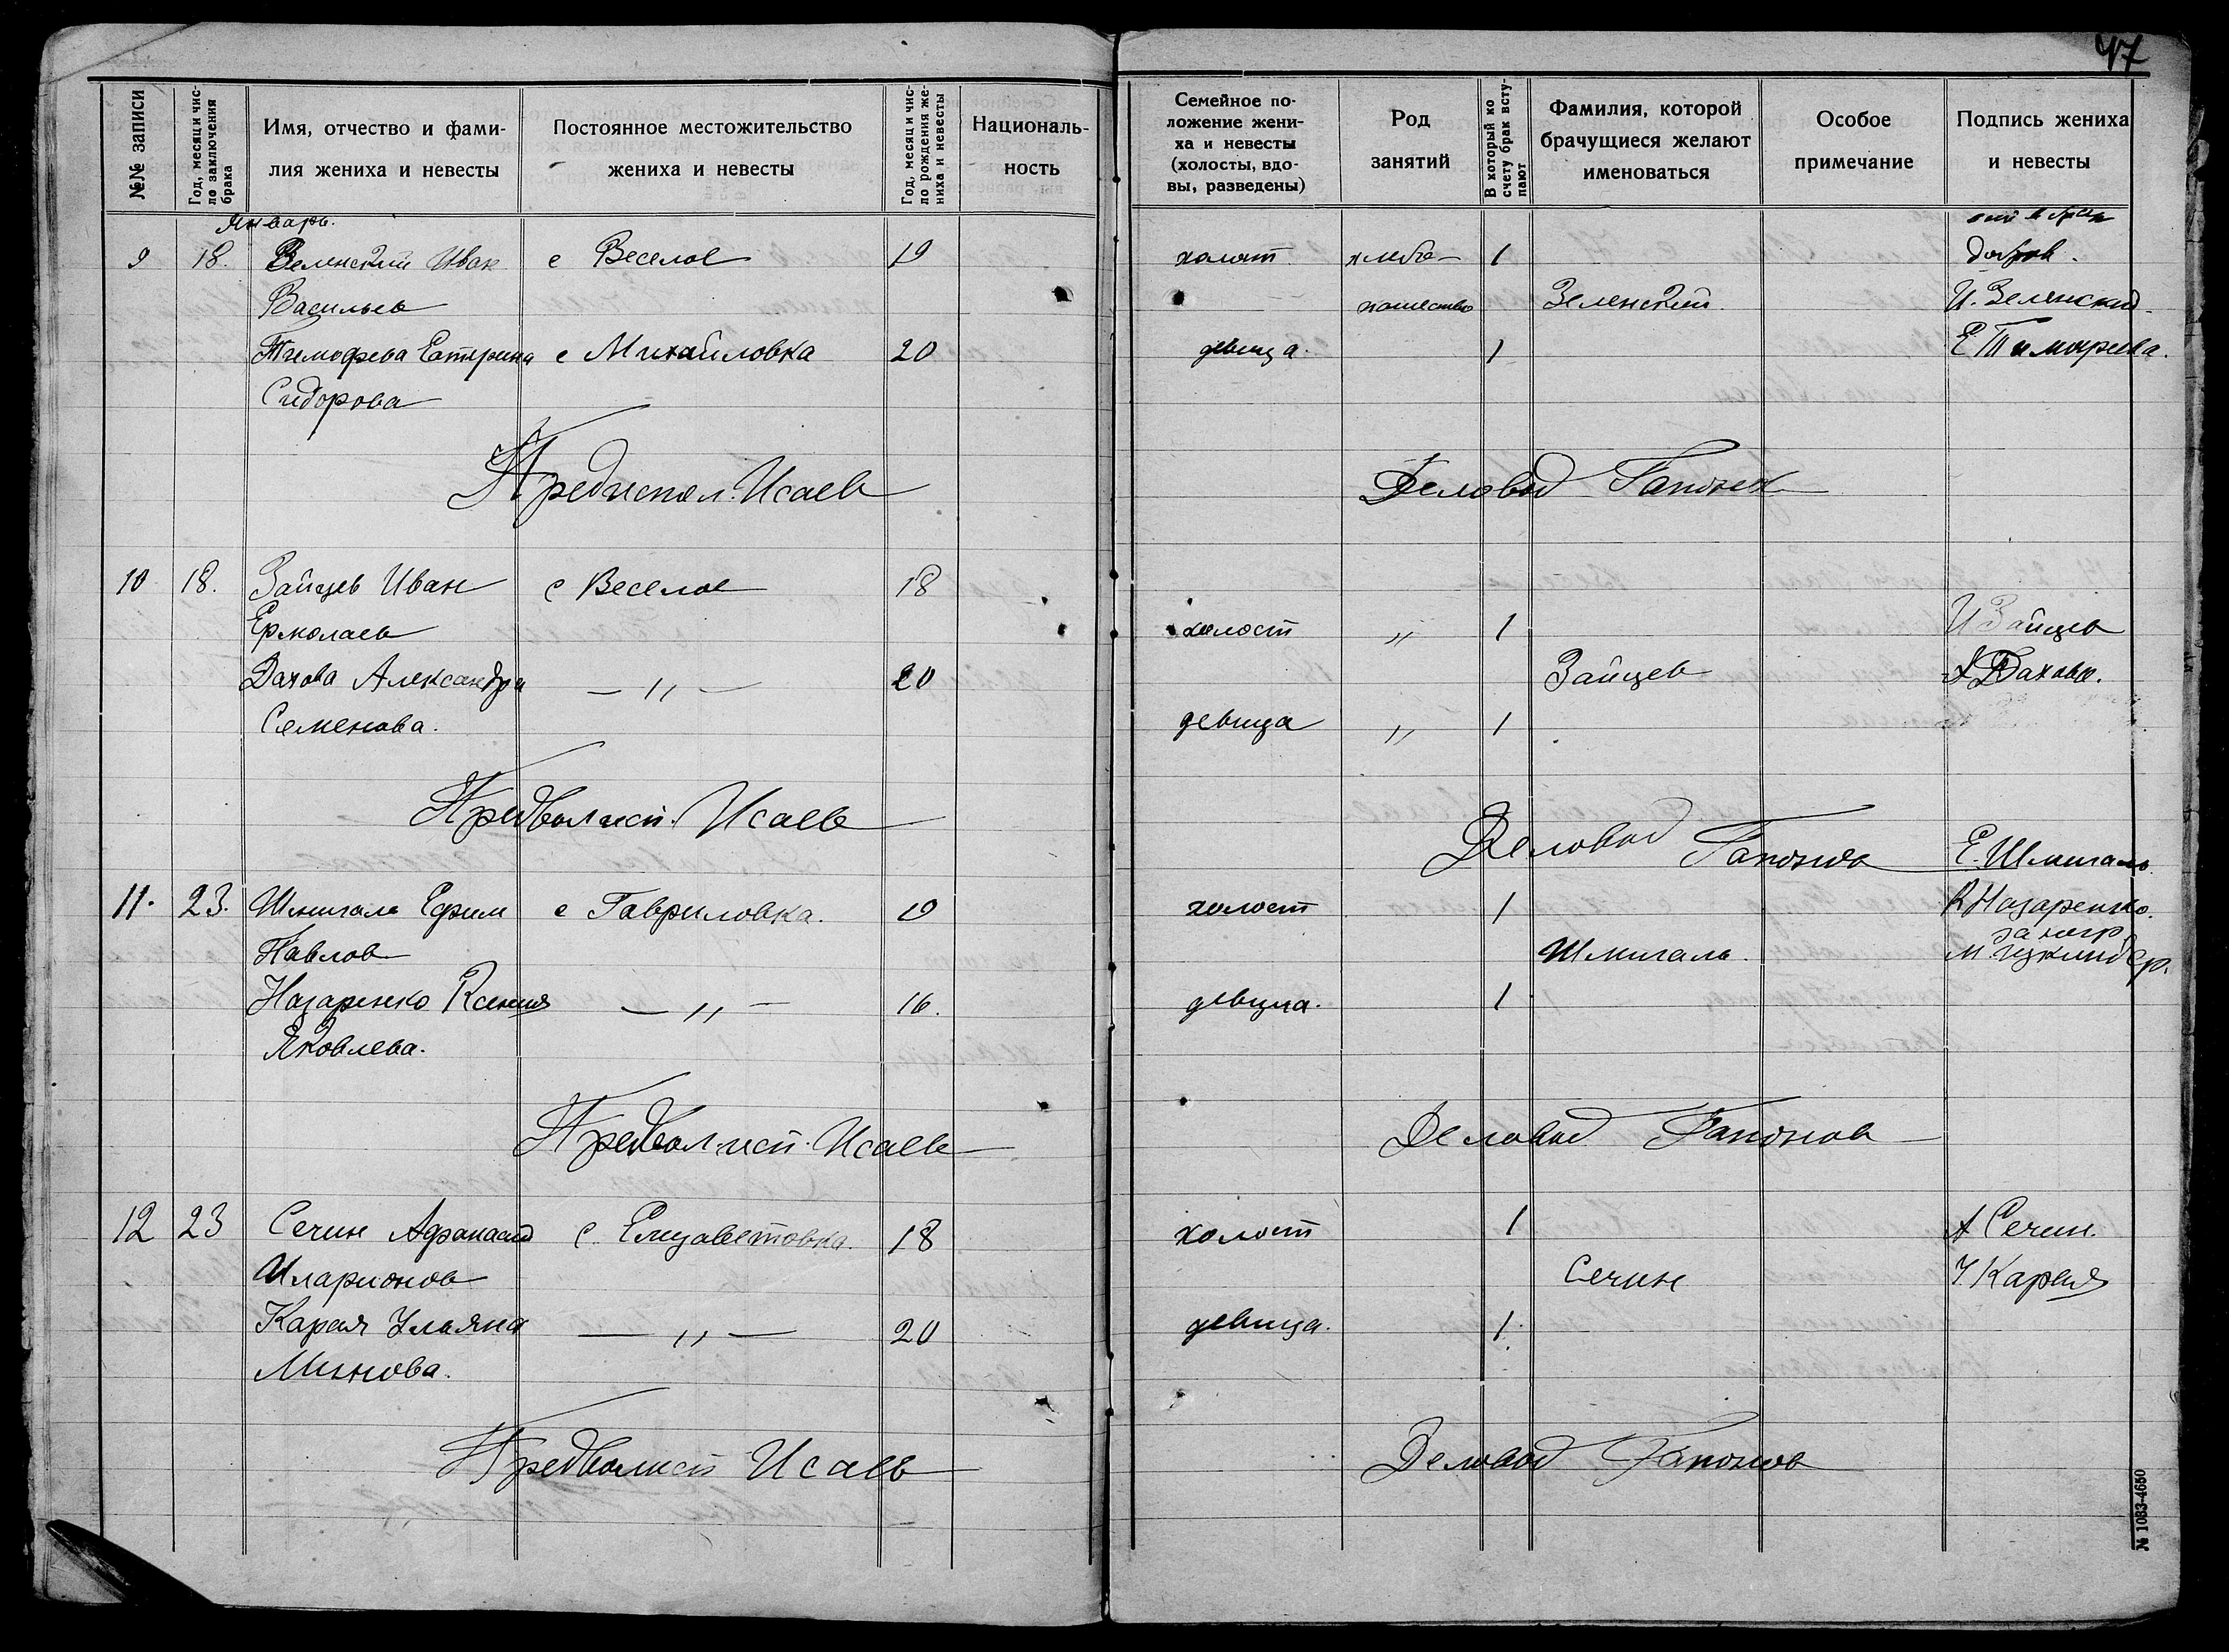 47
№№ записи
Год, месяц и чис-
ло заключения
брака
Имя, отчество и фами-
лия жениха и невесты
Постоянное местожительство
жениха и невесты
Год, месяц и чис-
ло рождения же-
ниха и невесты
Националь-
ность
Семейное по-
ложение жени-
ха и невесты
(холосты, вдо-
вы, разведены)
Род
занятий
В который ко
счету брак всту-
пают
Фамилия, которой
брачущиеся желают
именоваться
Особое
примечание
Подпись жениха
и невесты
Январь.
9 18. Зеленский Иван с Веселое 19 холост хлебо- 1
Васильев пашество Зеленский. И. Зеленский.
Тимофева Еатерина с Михайловка 20 девица. 1 Е Тимофеева.
Сидорова
Предиспол. Исаев Деловод Гапонов
10 18. Зайцев Иван с Веселое 18
Ермолаев холост " 1 И Зайцев
Дахова Александра — " — 20 Зайцев А Дахова.
Семенова. девица " 1
Предволисп. Исаев Деловод Гапонов Е. Шмигаль
11. 23. Шмигаль Ефим с Гавриловка. 19 холост 1 К Назаренко.
Павлов Шмигаль. за негр
Назаренко Ксения — " — 16. девица. 1
Яковлева.
Предволисп. Исаев Деловод Гапонов
12 23 Сечин Афанасий с. Елизаветовка. 18 холост 1 А Сечин.
Иларионов Сечин У. Карая
Карая Ульяна — " — 20 девица. 1.
Минова.
Предволисп Исаев Деловод Гапонов
№ 1083-4650